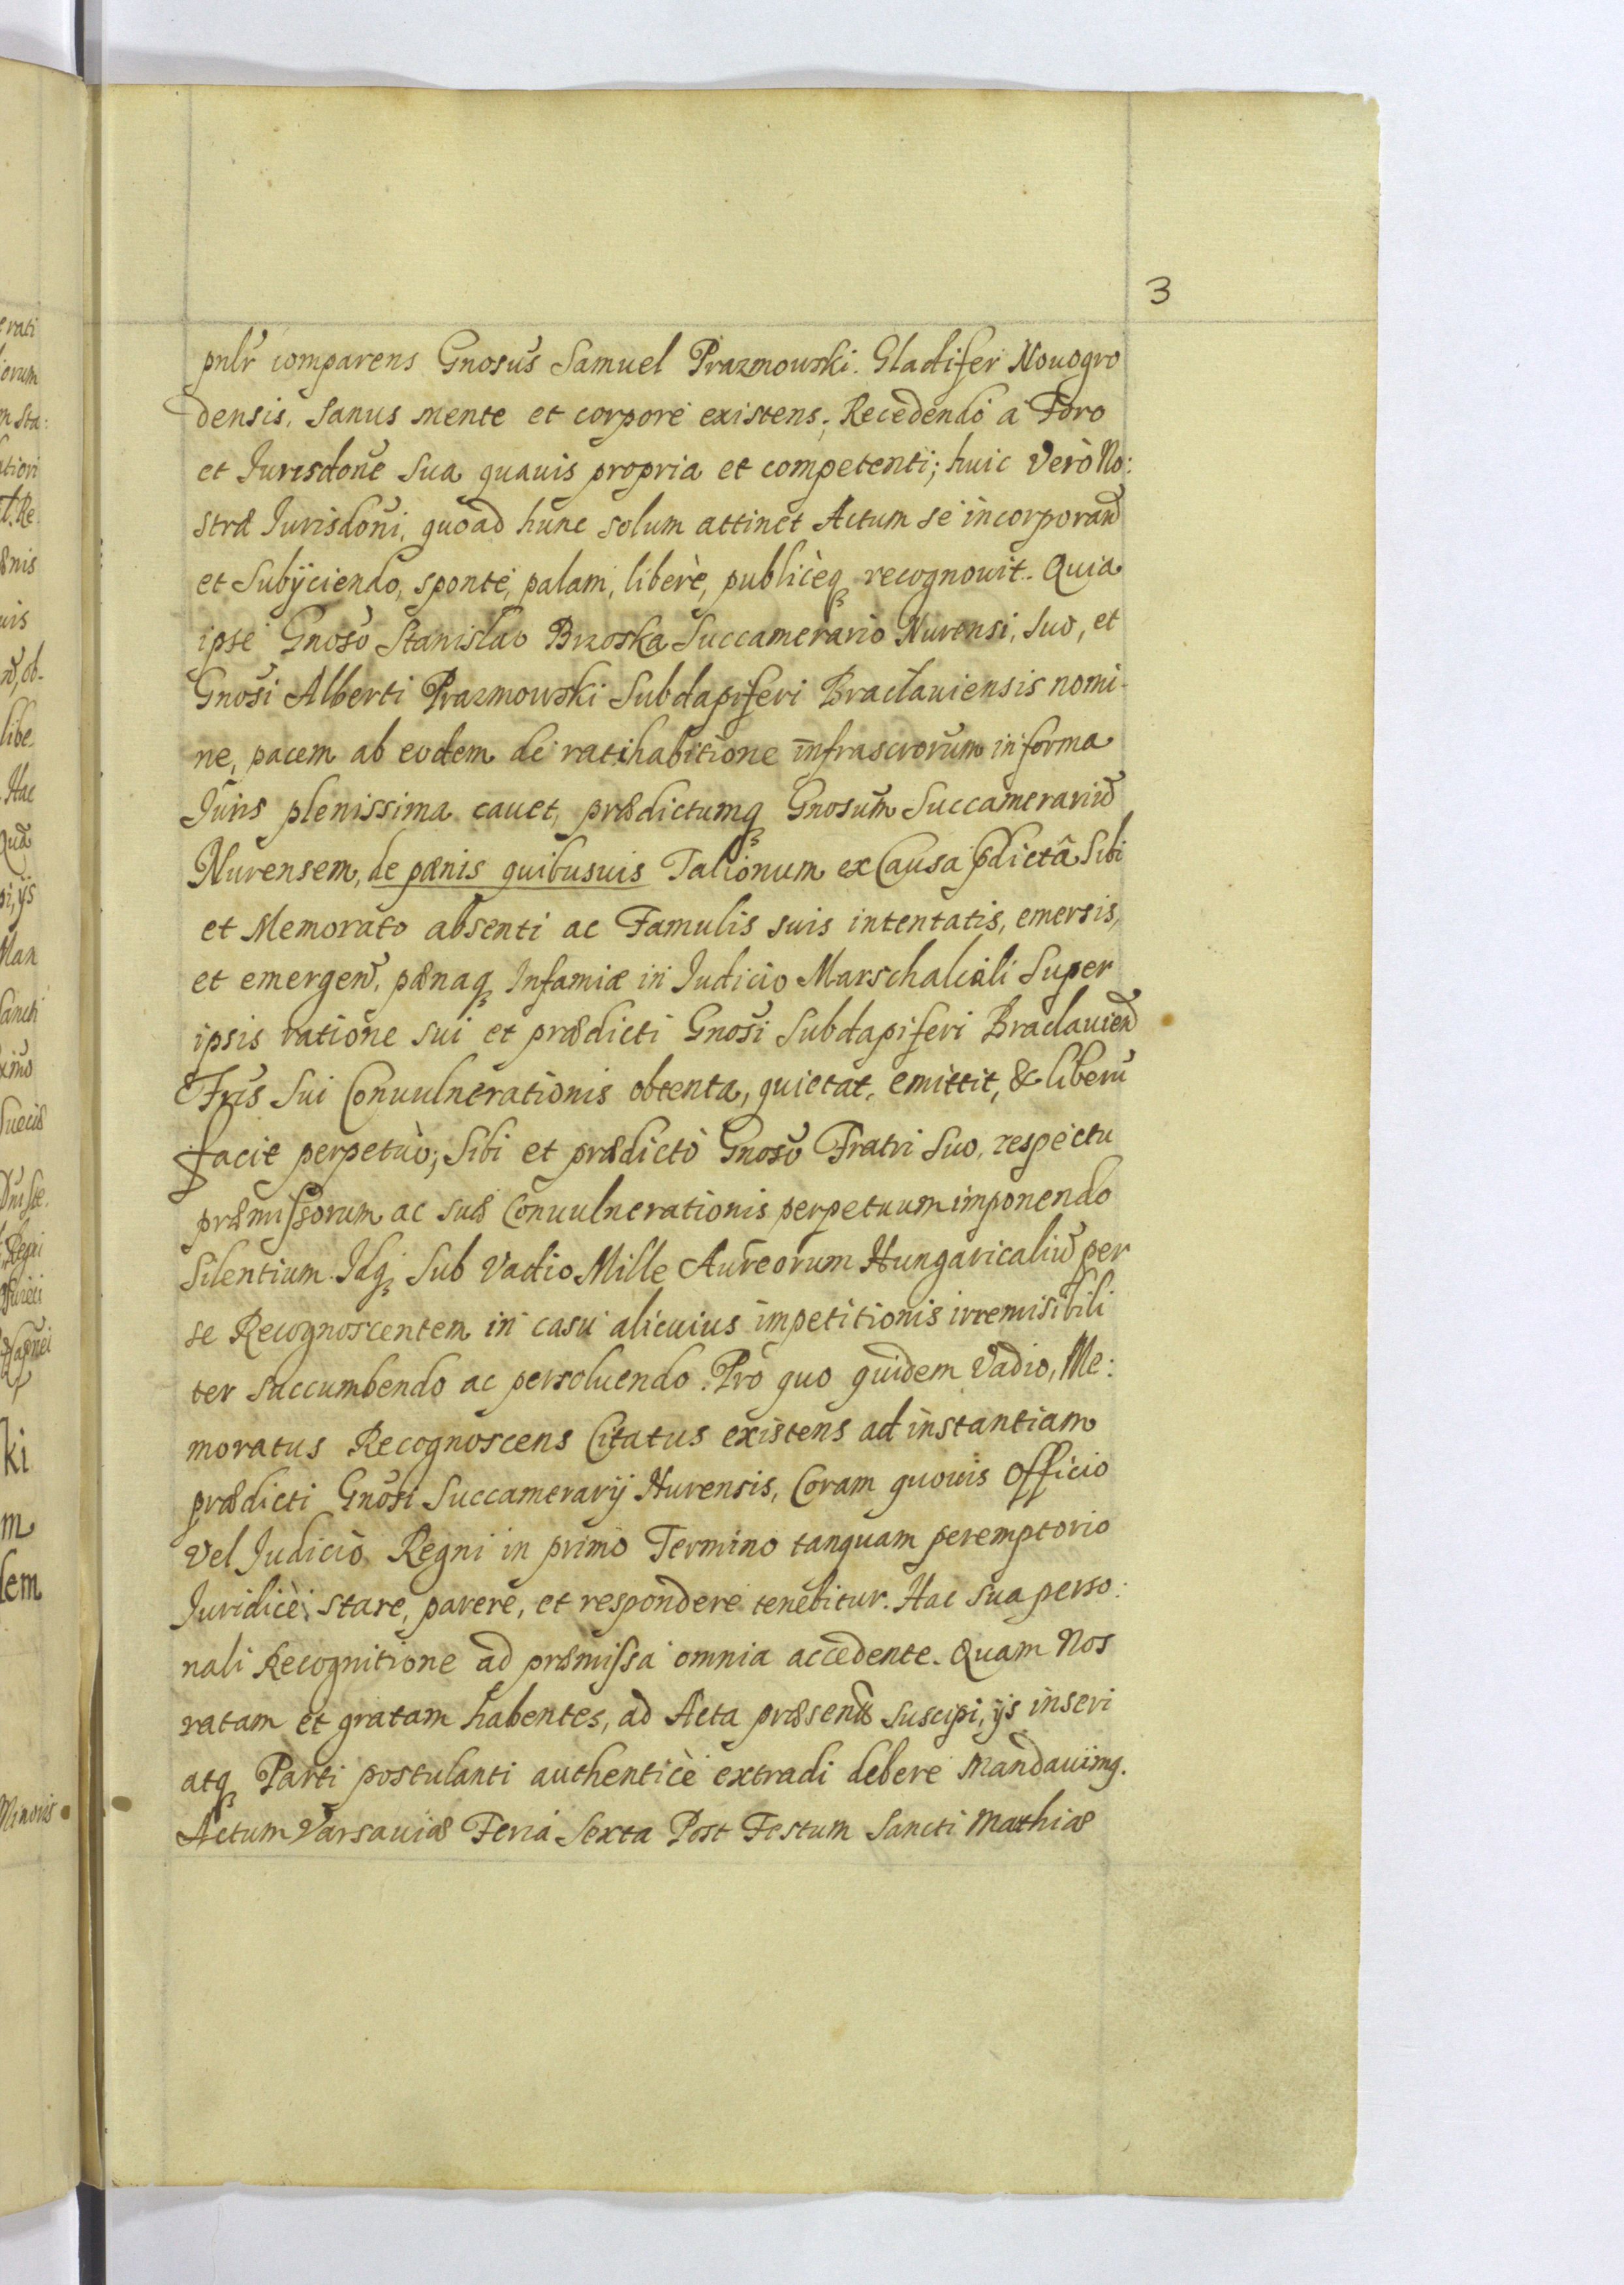 3
pnlr comparens Gnosus Samuel Prazmowski. Gladifer Nouogro
densis, Sanus mente et corpore existens; Recedendo a Foro
et Jurisdone Sua quauis propria et competenti; huic Verò No:
stræ Jurisdoni, quoad hunc solum attinet Actum se incorporand
et Subÿciendo, sponte, palam, liberè, publicèq recognouit. Quia
ipse Gnoso Stanislao Brzoska Succamerario Nurensi, Suo, et
Gnosi Alberti Prazmowski Subdapiferi Braclauiensis nomi-
ne, pacem ab eodem de ratihabitione infrascrorum in forma
Juris plenissima cauet, prædictumq Gnosum Succamerariu
Nurensem, de pænis quibusuis Talionum ex Causa pdictâ Sibi
et Memorato absenti ac Famulis suis intentatis, emersis,
et emergen, pænaq Infamiæ in Judicio Marschalcali Super
ipsis ratione sui et prædicti Gnosi Subdapiferi Braclauien
Fris Sui Conuulnerationis obtenta, quietat, emittit, & liberu
facit perpetuò; Sibi et prædicto Gnoso Fratri Suo, respectu
præmissorum ac suæ Conuulnerationis perpetuum imponendo
Silentium. Idq Sub Vadio Mille Aureorum Hungaricaliu per
se Recognoscentem in casu alicuius impetitionis irremisibili
ter succumbendo ac persoluendo. Pro quo quidem Vadio, Me:
moratus Recognoscens Citatus existens ad instantiam
prædicti Gnosi Succamerarÿ Nurensis, Coram quouis Officio
Vel Judicio Regni in primo Termino tanquam peremptorio
Juridicè stare, parere, et respondere tenebitur. Hac sua perso:
nali Recognitione ad præmissa omnia accedente. Quam Nos
ratam et gratam habentes, ad Acta præsentu suscipi, ÿs inseri
atq Parti postulanti authenticè extradi debere Mandauimq.
Actum Varsauiæ Feria Sexta Post Festum Sancti Mathiæ